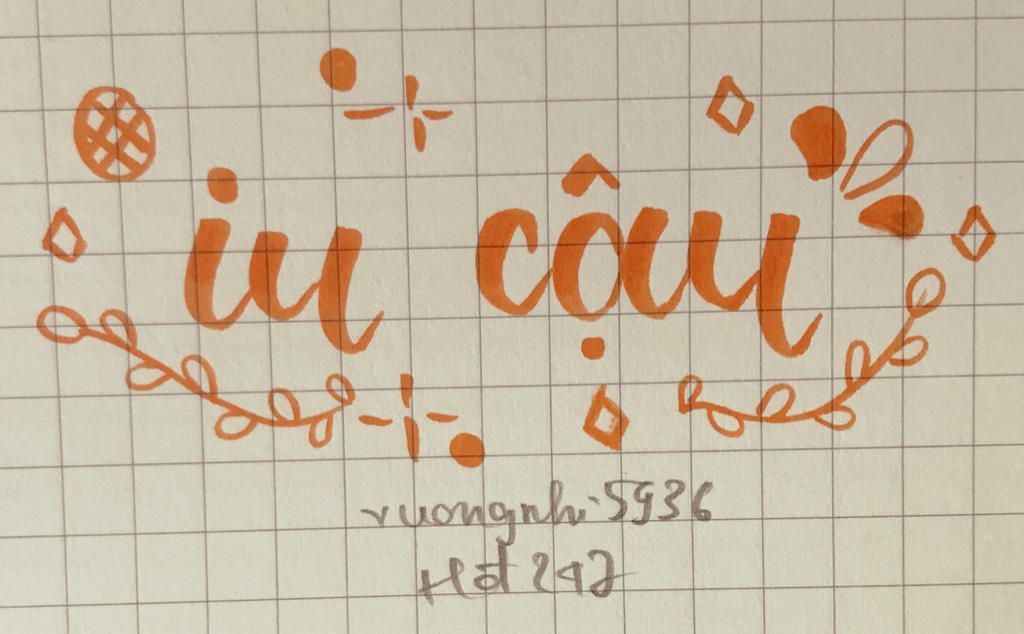 iu cậu
vuongnhi.5936
Hđ 247